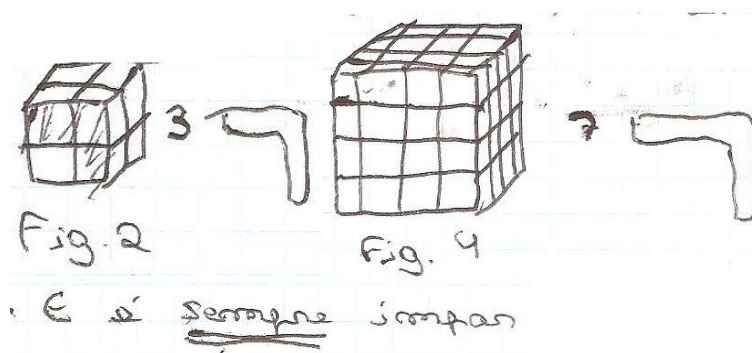 3 7
Fig. 2 Fig. 4
. E é sempre impar